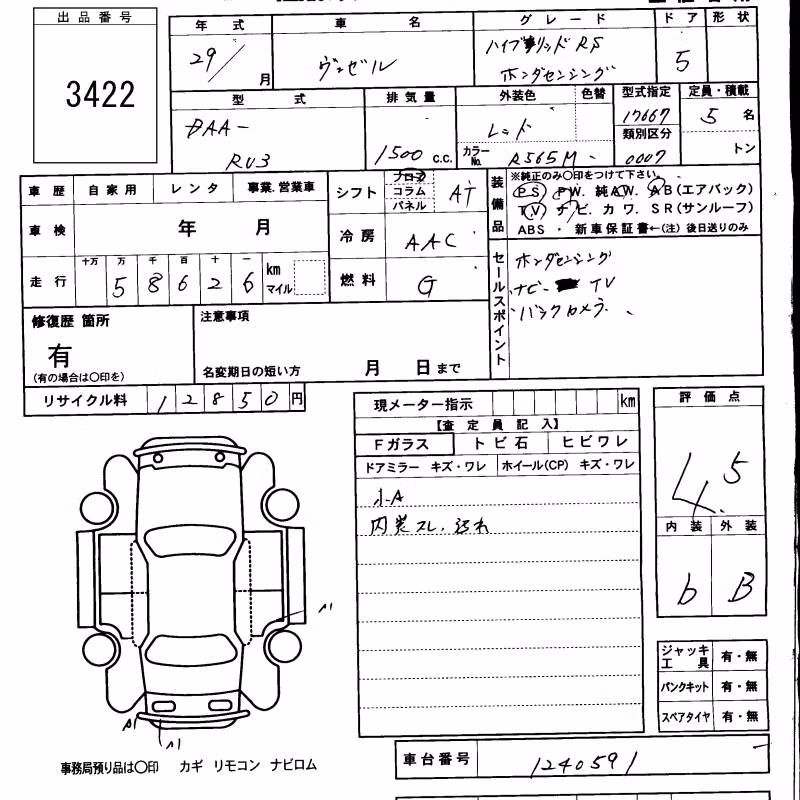 出品番号
3422
年式 車名 グレード ドア 形状
29/ 月 ヴェゼル ハイブリッド RS
ホンダセンシング 5
型式 排気量 外装色 色替 型式指定 定員・積載
DAA-
RU3 1500 c.c. レッド 17667 5 名
カラーNo. R565M 類別区分 0007 トン
車歴 自家用 レンタ 事業.営業車
車検 年 月
走行 十万 万 千 百 十 一
5 8 6 2 6 km マイル
シフト フロア コラム パネル AT
冷房 AAC
燃料 G
装備品
※純正のみ〇印をつけて下さい
PS PW. 純AW. AB(エアバック)
TV ナビ. カワ. SR(サンルーフ)
ABS ・ 新車保証書←(注) 後日送りのみ
セールスポイント
ホンダセンシング
ナビ- TV
バックカメラ
修復歴 箇所
有
(有の場合は〇印を)
注意事項
名変期日の短い方 月 日まで
リサイクル料 12850円
現メーター指示 km
【査定員記入】
Fガラス トビ石 ヒビワレ
ドアミラー キズ・ワレ ホイール(CP) キズ・ワレ
小A
内装スレ.汚れ
評価点
4.5
内装 外装
b B
A1
A1
A1
ジャッキ工具 有・無
パンクキット 有・無
スペアタイヤ 有・無
事務局預り品は〇印 カギ リモコン ナビロム
車台番号 1240591